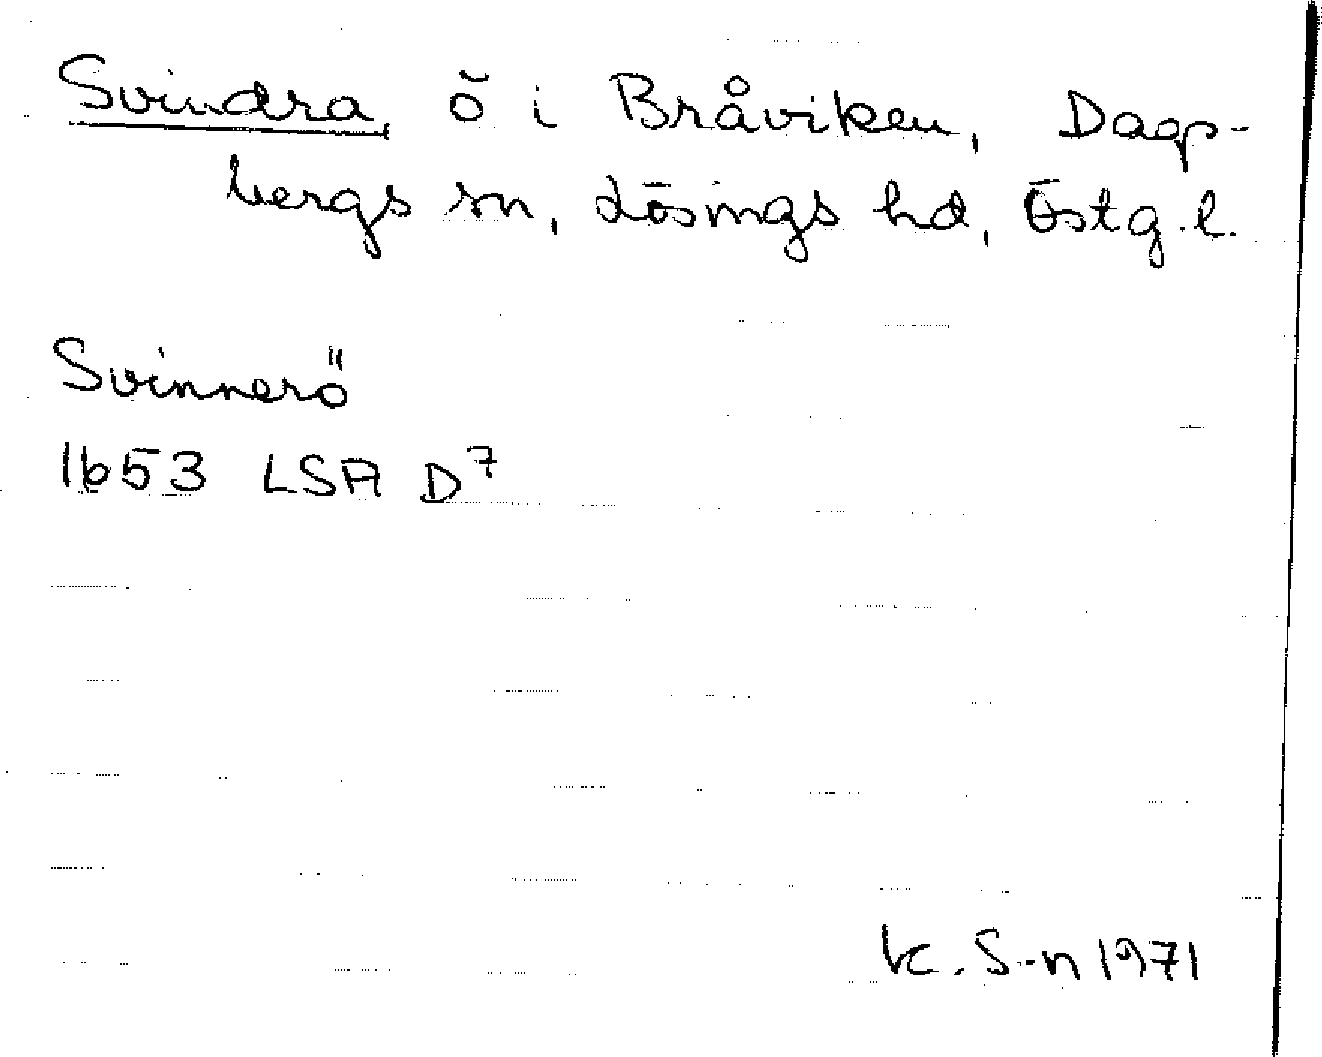 Svindra, ö i Bråviken, Dags-
bergs sn, Lösings hd, Östg.l.
Svinnerö
1653 LSA D7
K. S-n 1971